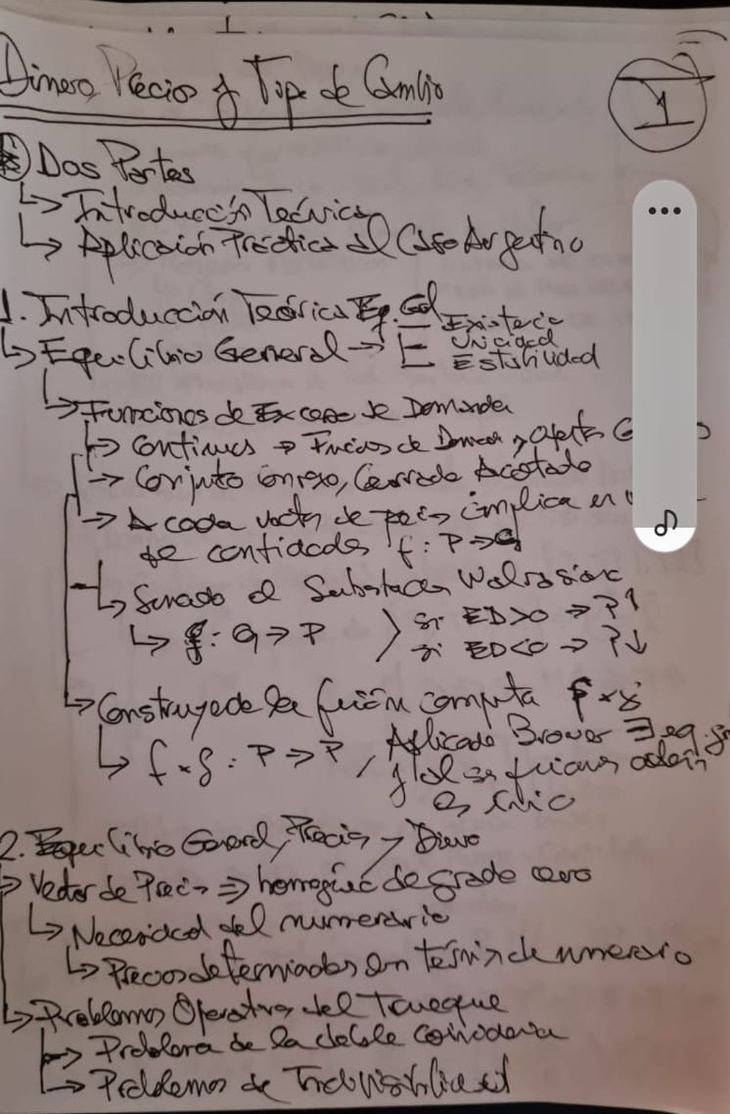 Dinero, Precios y Tipo de Cambio
1
Dos Partes
↳ Introducción Teórica
↳ Aplicación Práctica al Caso Argentino
1. Introducción Teórica Eq. Gral
↳ Equilibrio General → Existencia
Unicidad
Estabilidad
↳ Funciones de Exceso de Demanda
→ Continuas → Funcios de Deman y Oferta
→ Conjunto convexo, Cerrado Acotado
→ A cada vector de precios implica en
de cantidades f: P → Q
↳ Senado el Subastador Walrasiano
↳ g: Q → P
si ED>0 → P↑
si ED<0 → P↓
↳ Construyede la función computa f × g
↳ f × g : P → P / Aplicado Brower ∃ eq.
es único
2. Equilibrio General, Precios y Dinero
→ Vector de Precios ⇒ homogéneo de grado cero
↳ Necesidad del numerario
↳ Precios determinados en términos de numerario
↳ Problemas Operativos del Trueque
→ Problema de la doble coincidencia
→ Problemas de Indivisibilidad